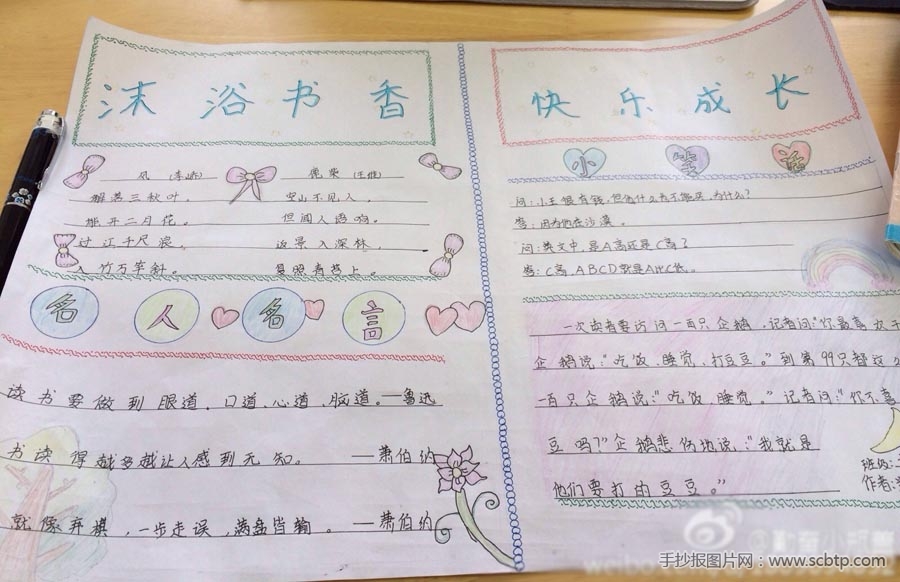 沫浴书香
风 (李峤)
解落三秋叶，
能开二月花。
过江千尺浪，
入竹万竿斜。
鹿柴 (王维)
空山不见人，
但闻人语响。
返景入深林，
复照青苔上。
名人名言
读书要做到眼道、口道、心道、脑道。—鲁迅
书读得越多越让人感到无知。 —萧伯纳
就像弈棋，一步走误，满盘皆输。—萧伯纳
快乐成长
小笑话
问:小王很有钱，但他什么也不能买，为什么?
答:因为他在沙漠。
问:英文中，是A高还是C高?
答:C高，ABCD就是A比C低。
一次读者要访问一百只企鹅，记者问:"你最喜
企鹅说:"吃饭、睡觉、打豆豆。"到第99只都这么
一百只企鹅说:"吃饭、睡觉。"记者问:"你不喜
豆吗?"企鹅悲伤地说:"我就是
他们要打的豆豆。"
班级:
作者:
手抄报图片网：www.scbtp.com